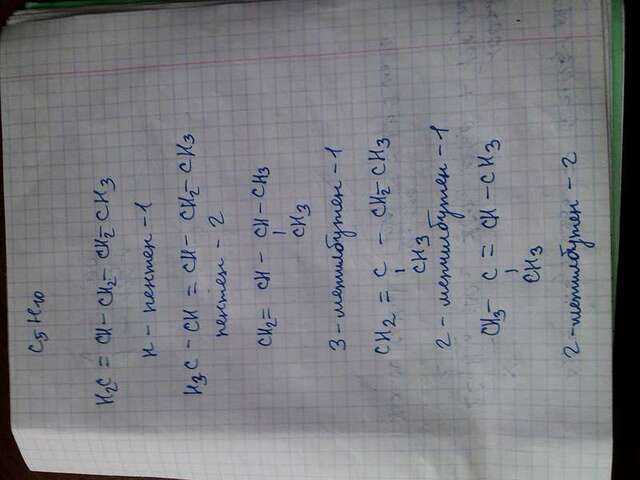 C5H10
H2C = CH - CH2 - CH2 - CH3
н - пентен - 1
H3C - CH = CH - CH2 - CH3
пентен - 2
CH2 = CH - CH - CH3
CH3
3 - метилбутен - 1
CH2 = C - CH2 - CH3
CH3
2 - метилбутен - 1
CH3 - C = CH - CH3
CH3
2 - метилбутен - 2